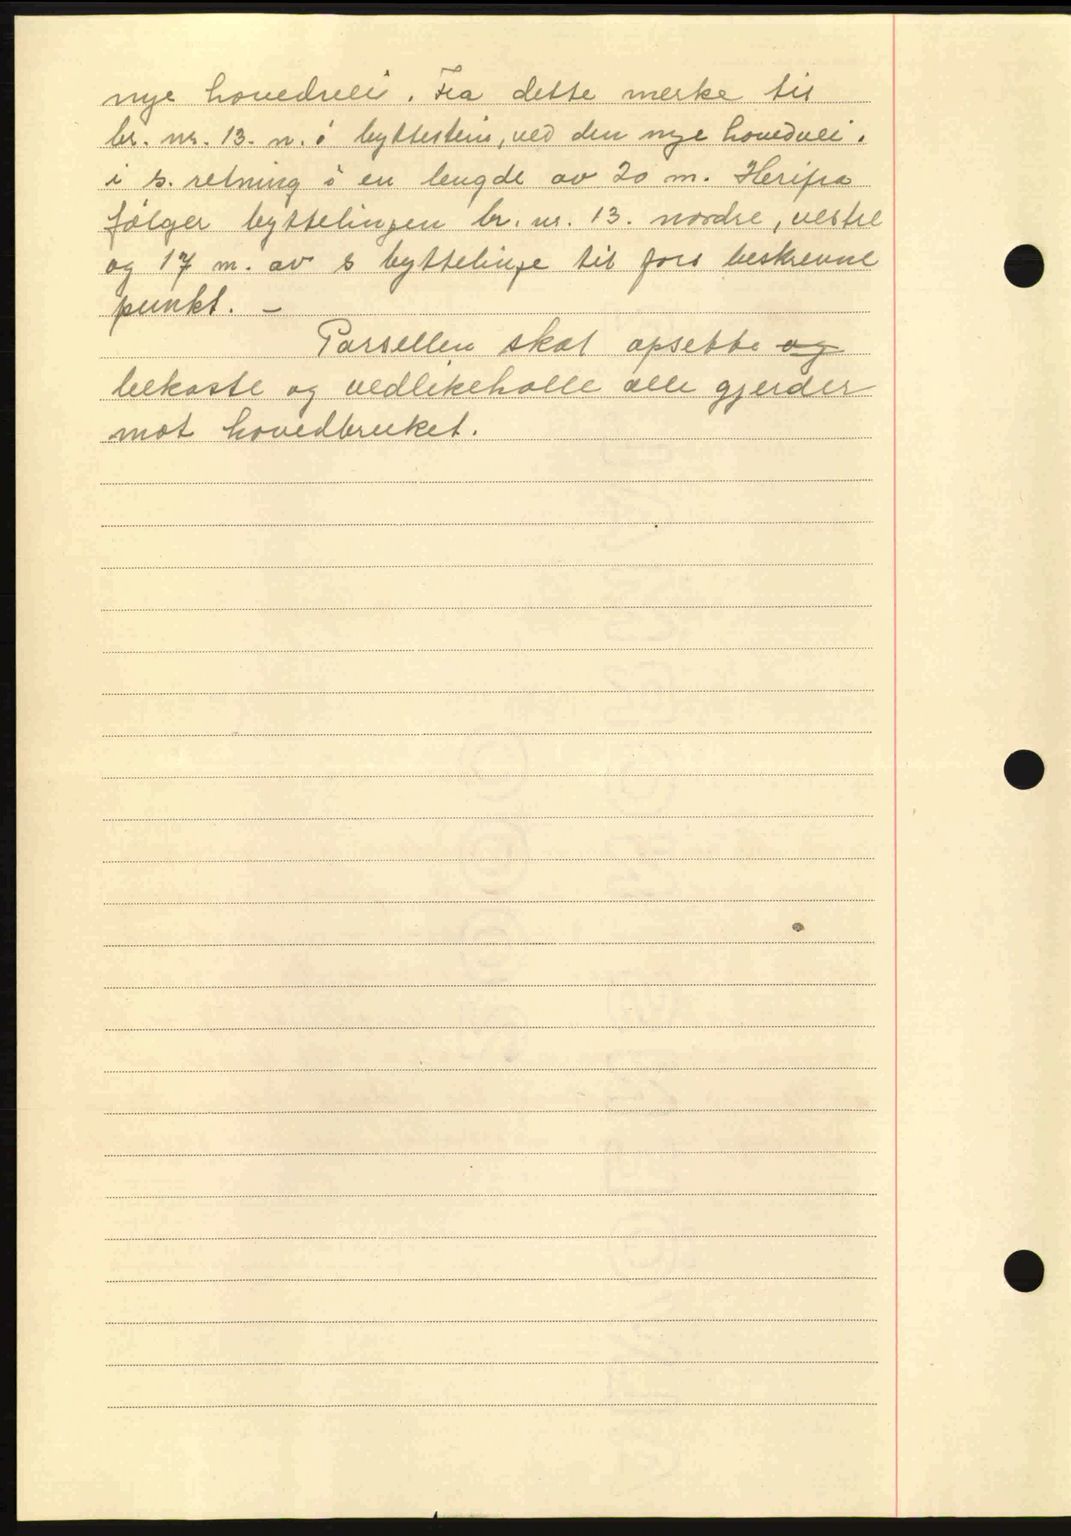 nye hovedvei. Fra dette merke til
br. nr. 13. n. ö byttestein, ved den nye hovedvei.
i s. retning ö en lengde av 20 m. Herifra
følger byttelingen br. nr. 13. nordre, vestre
og 17 m. av s byttelinje til før beskrevne
punkt. —
Parsellen skal opsette og
bekoste og vedlikeholde alle gjerder
mot hovedbruket.